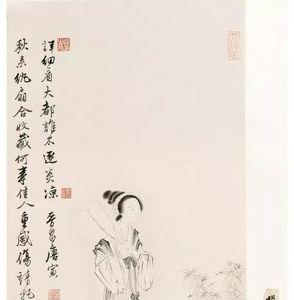 秋來紈扇合收藏何事佳人重感傷請把
詳細看大都誰不逐炎涼
晉昌唐寅